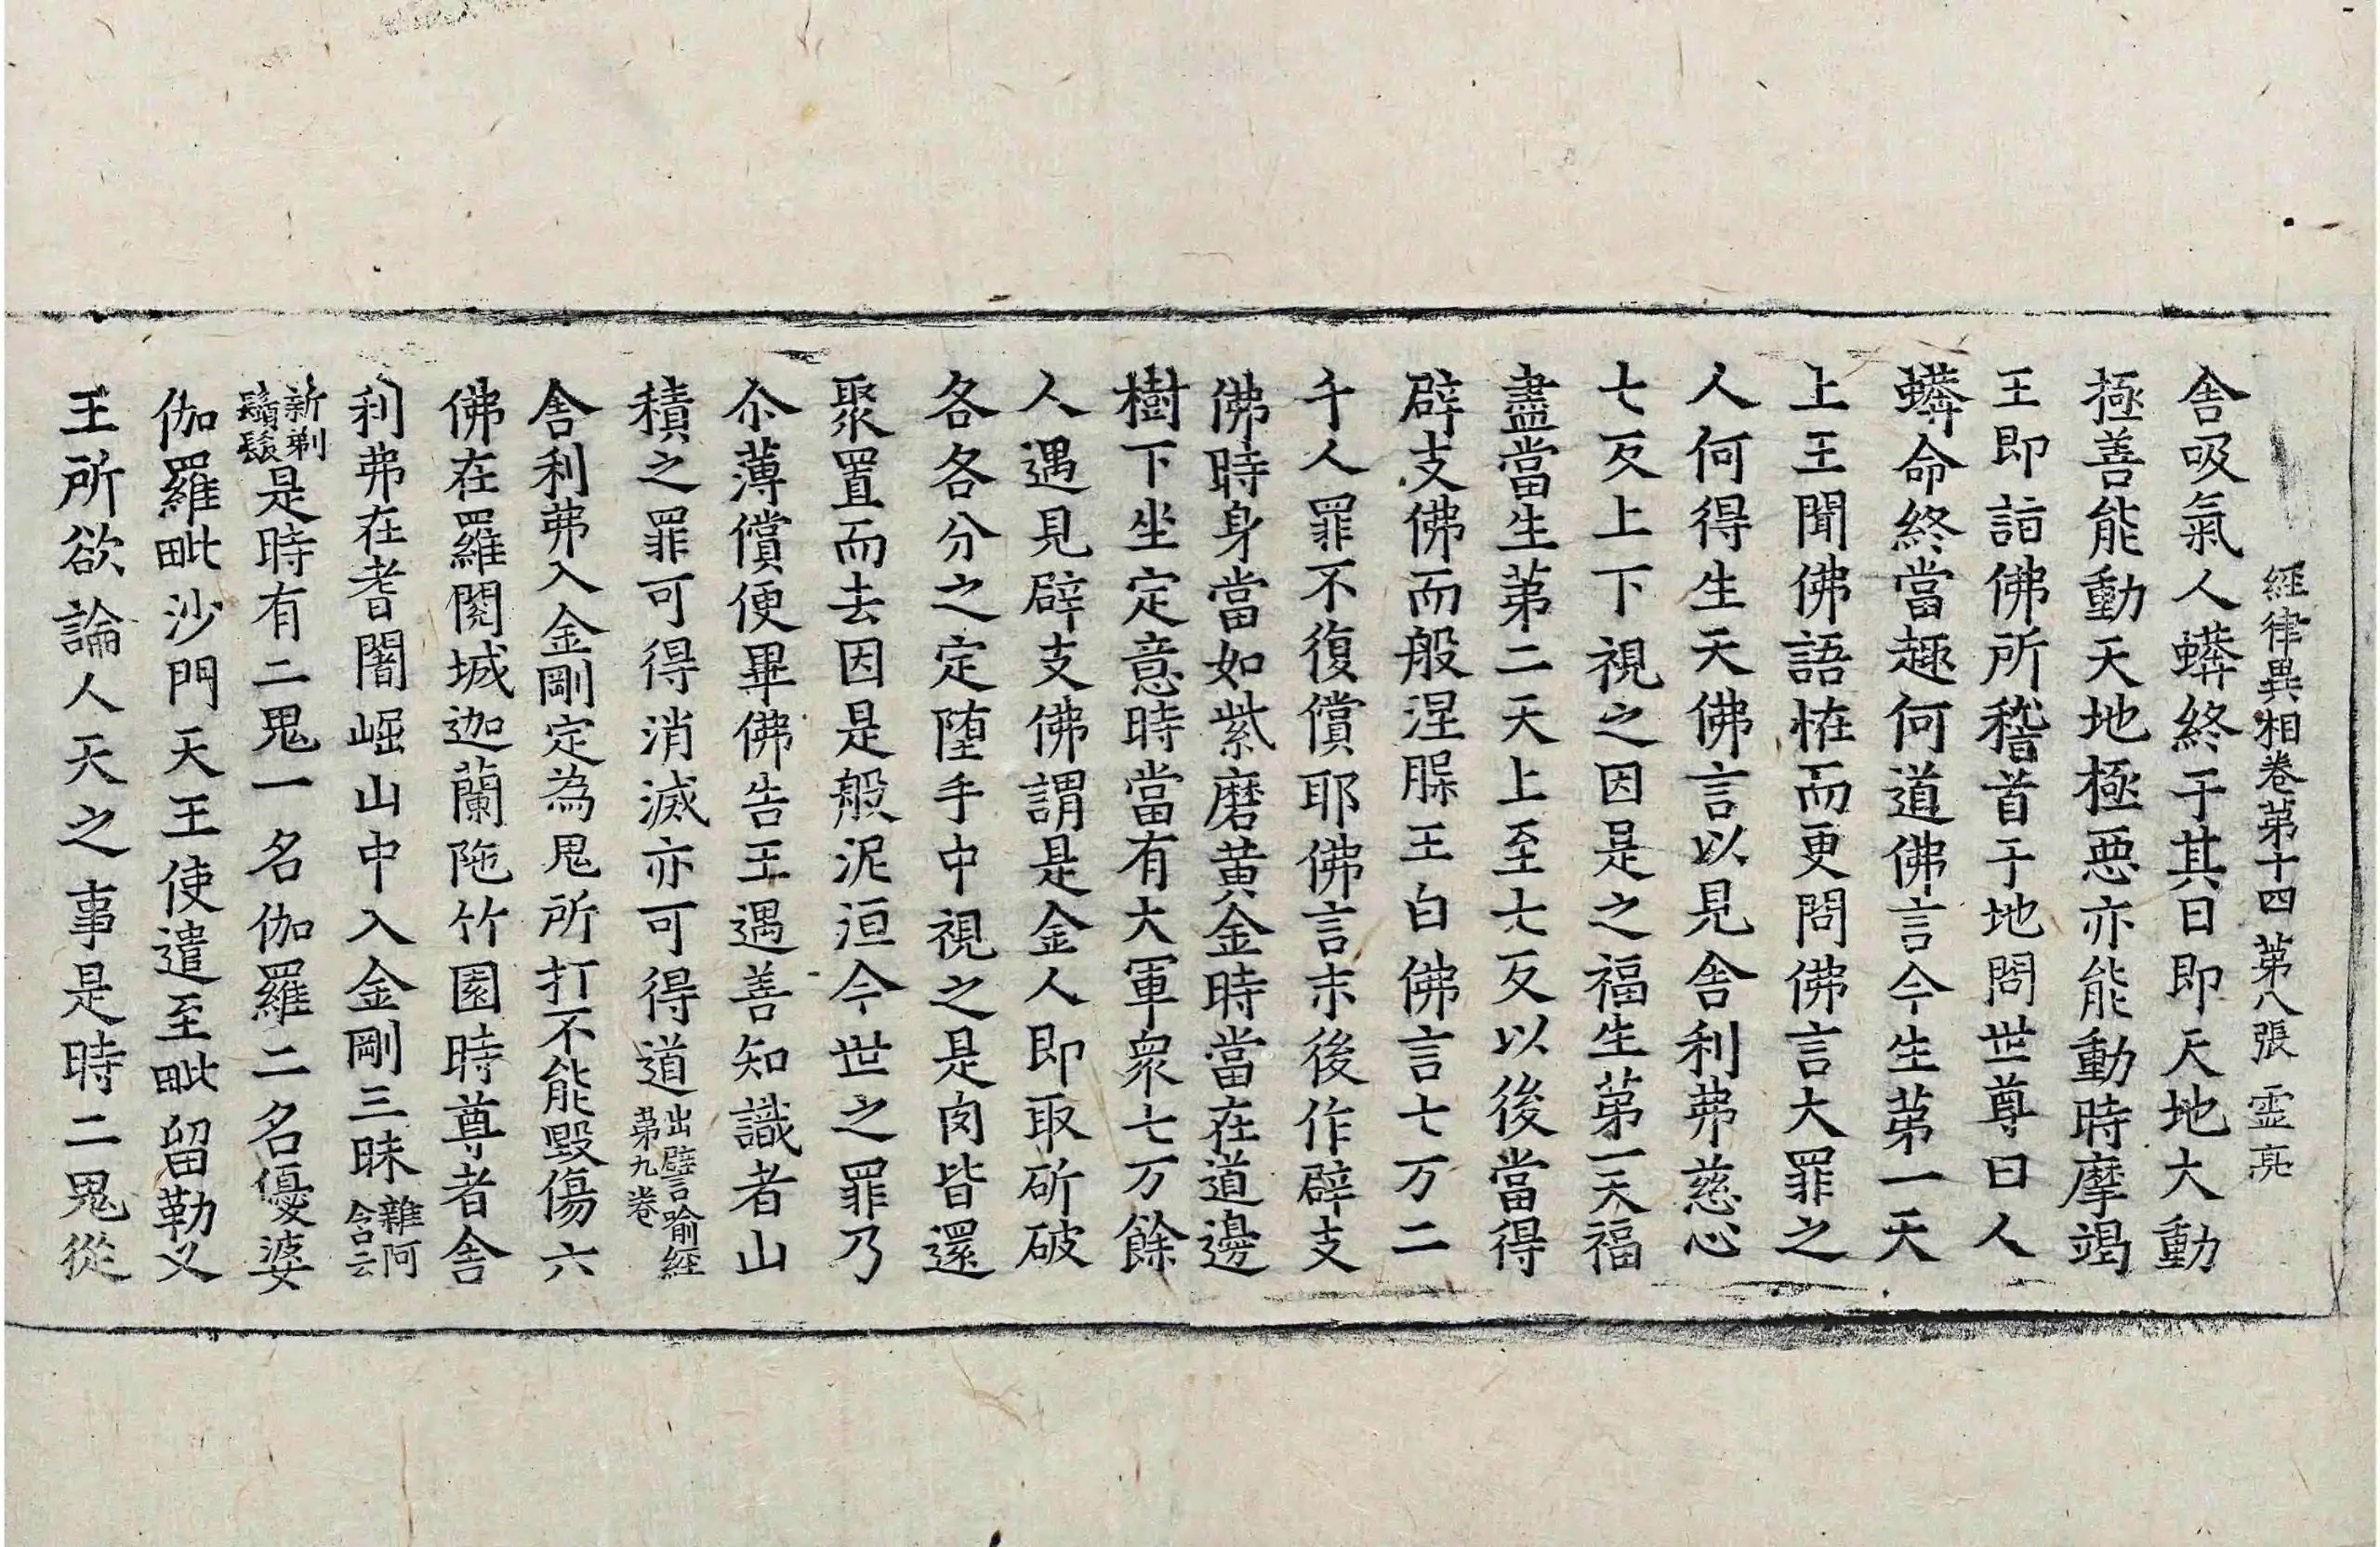 經律異相卷第十四 第八張 霊亮
舍吸氣人蟒終于其日即天地大動
極善能動天地極惡亦能動時摩竭
王即詣佛所稽首于地問世尊曰人
蟒命終當趣何道佛言今生第一天
上王聞佛語恠而更問佛言大罪之
人何得生天佛言以見舍利弗慈心
七反上下視之因是之福生第一天福
盡當生第二天上至七反以後當得
辟支佛而般涅䏶王白佛言七万二
千人罪不復償耶佛言末後作辟支
佛時身當如紫磨黃金時當在道邊
樹下坐定意時當有大軍衆七万餘
人遇見辟支佛謂是金人即取斫破
各各分之定墮手中視之是肉皆還
聚置而去因是般泥洹今世之罪乃
尒薄償便畢佛告王遇善知識者山
積之罪可得消滅亦可得道出譬喻經第九卷
舍利弗入金剛定為鬼所打不能毀傷六
佛在羅閱城迦蘭陁竹園時尊者舍
利弗在耆闍崛山中入金剛三昧雜阿含云
新剃鬚髮是時有二鬼一名伽羅二名優婆
伽羅毗沙門天王使遣至毗留勒叉
王所欲論人天之事是時二鬼從